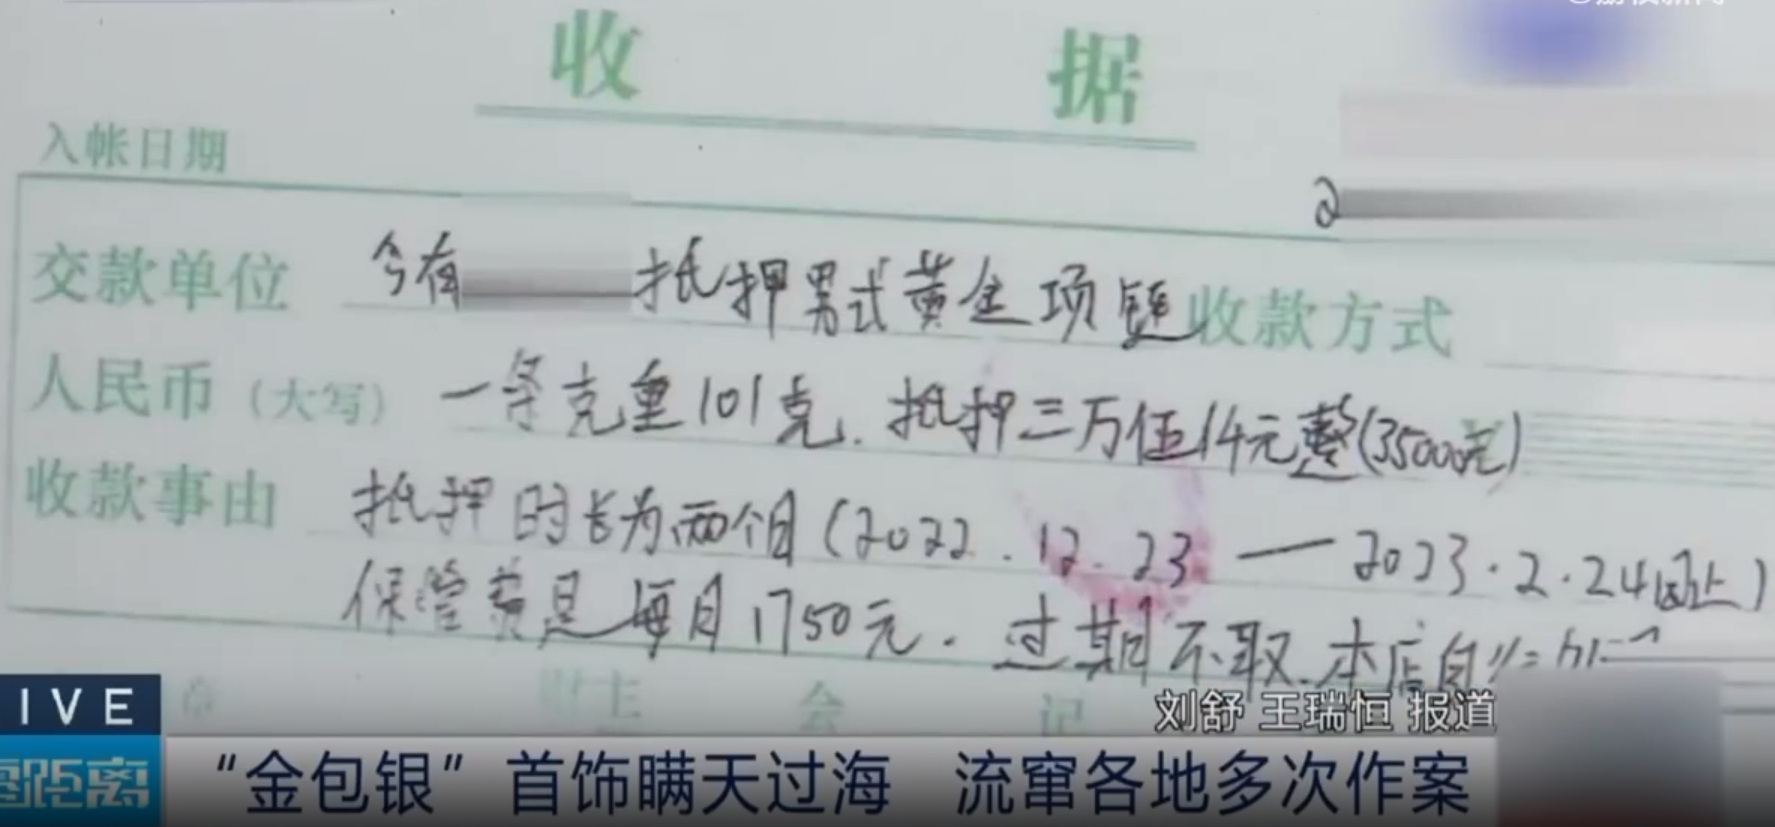 收 据
入帐日期
2
交款单位 今有 抵押男式黄金项链 收款方式
人民币（大写） 一条克重101克. 抵押三万伍仟元整(35000元)
收款事由 抵押时长为两个月(2022.12.23 — 2023.2.24日止)
保管费是每月1750元. 过期不取.本店自
会 记
刘舒 王瑞恒 报道
IVE
距离
“金包银”首饰瞒天过海 流窜各地多次作案